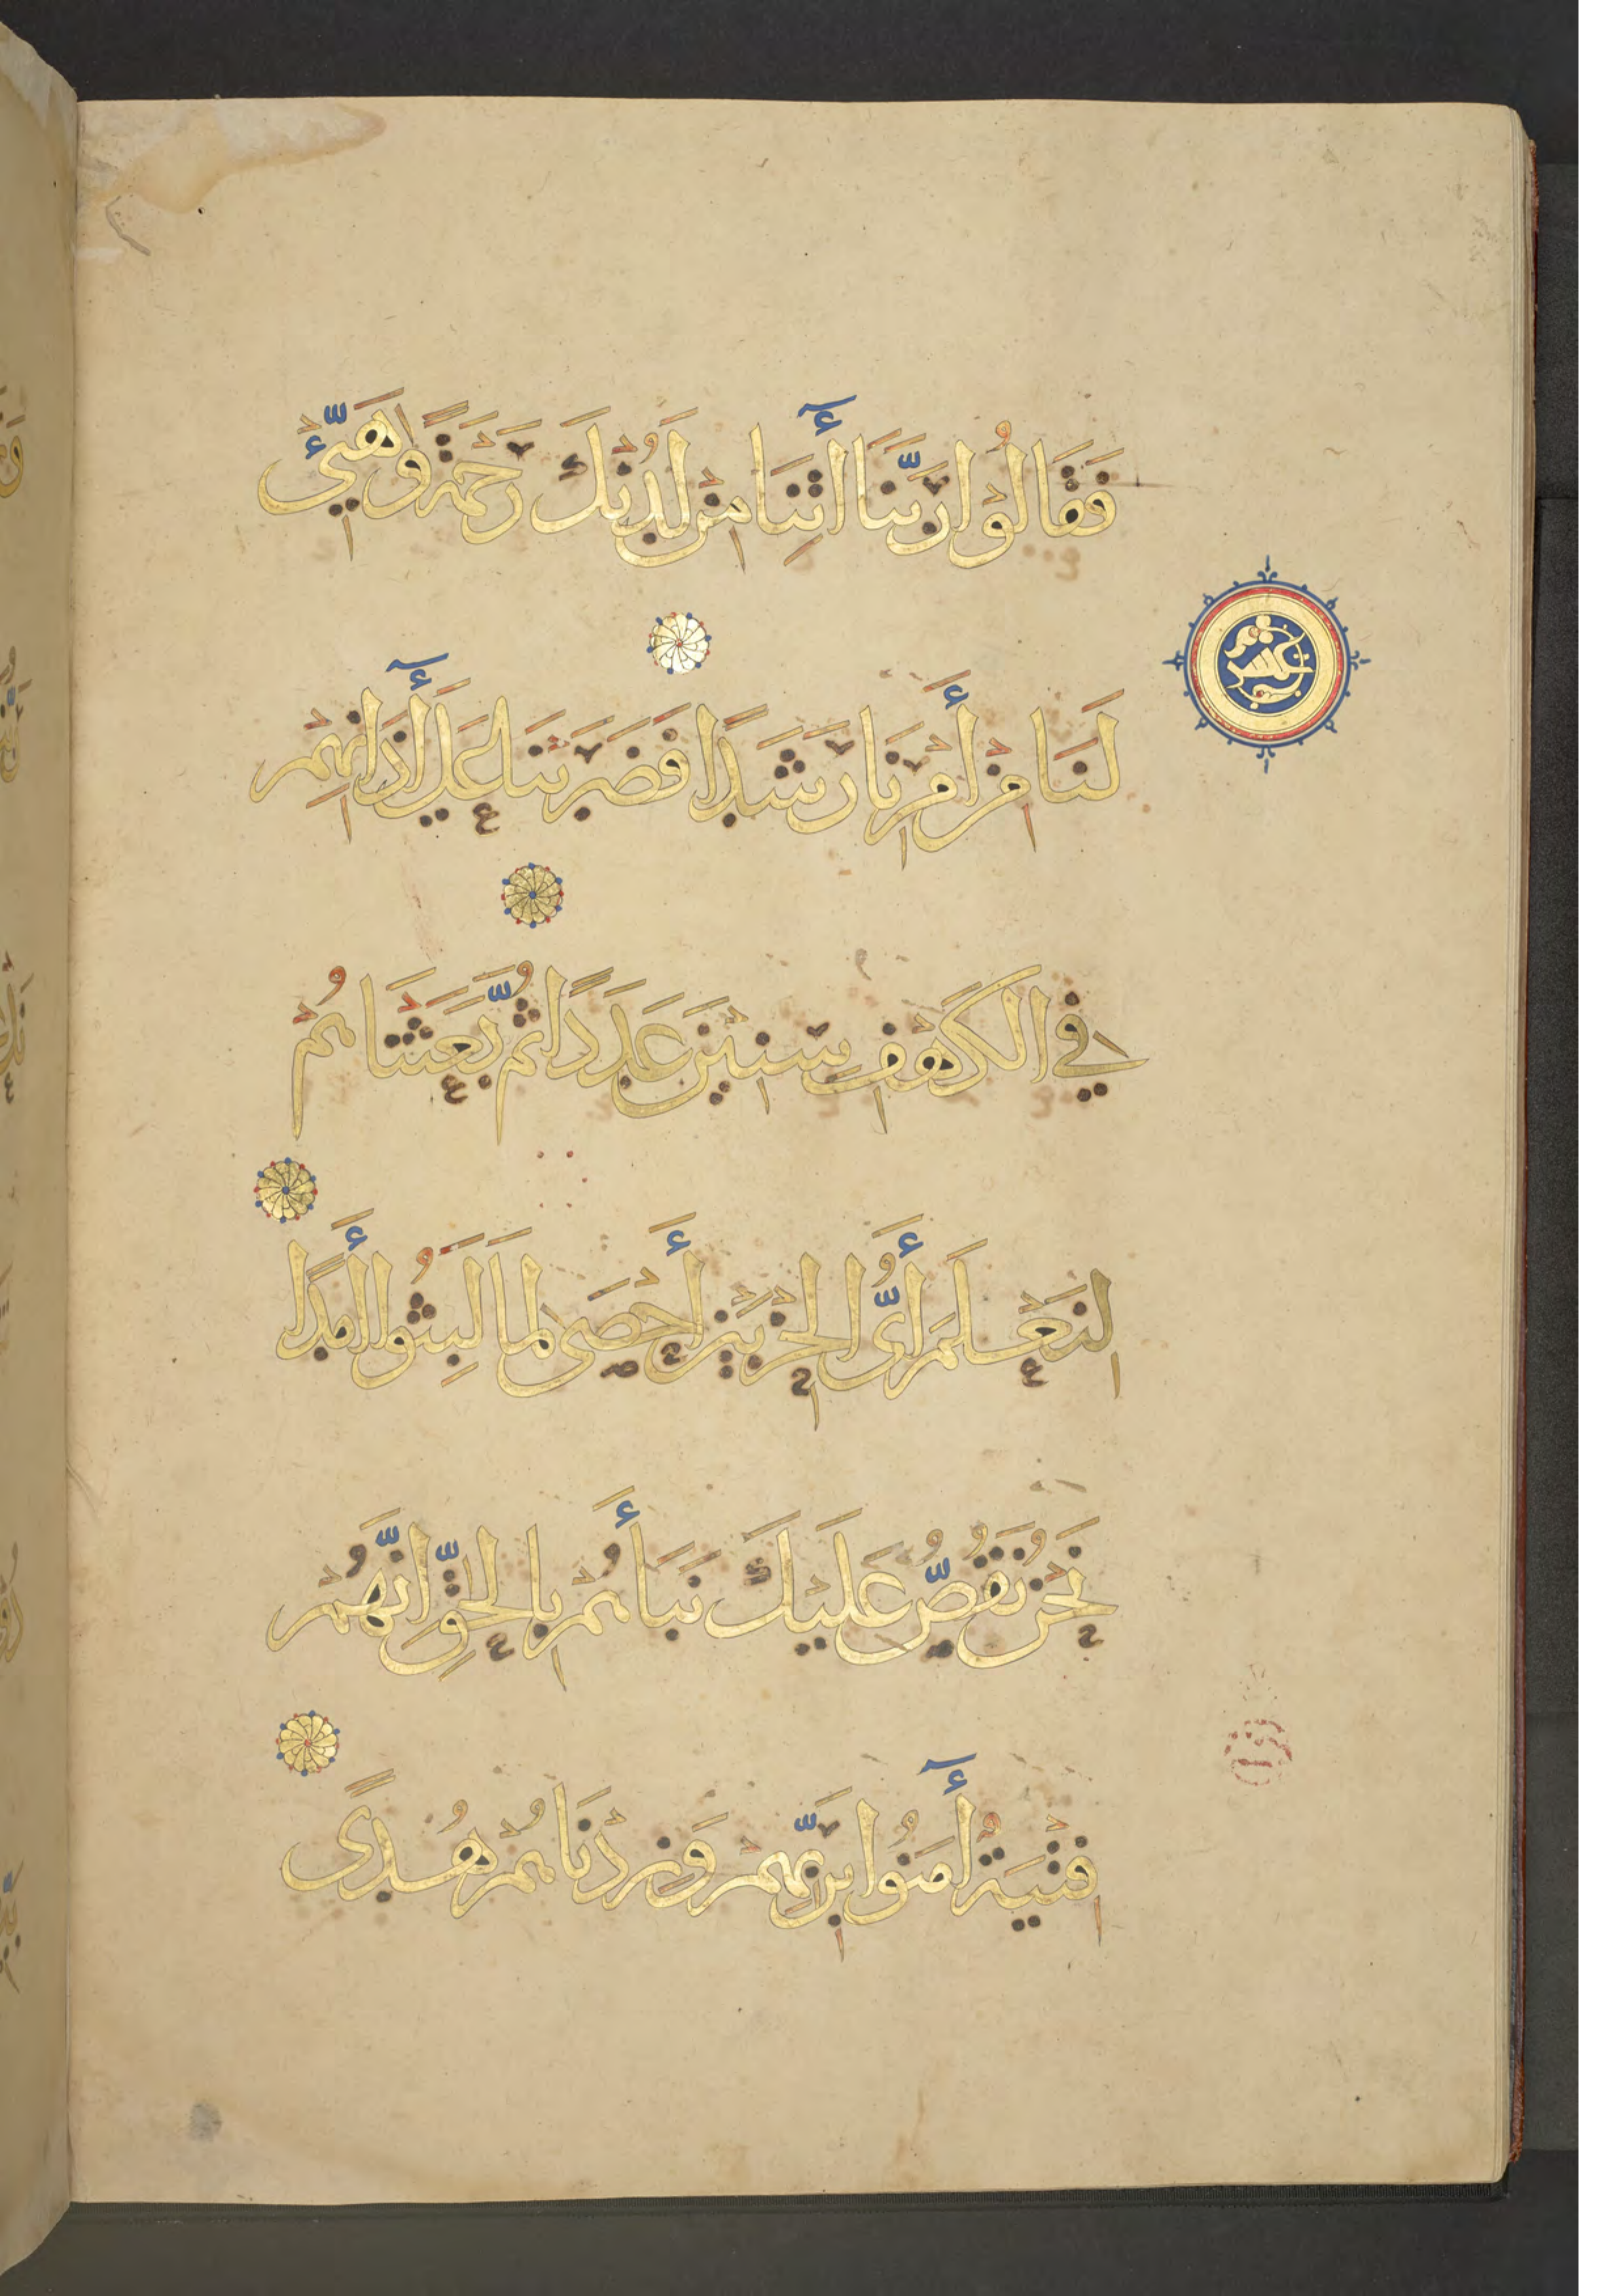 فَقَالُوْا رَبَّنَا أٓتِنَا مِنْ لَدُنْكَ رَحْمَةً وَهَيِّئْ
عشر
لَنَا مِنْ أَمْرِنَا رَشَدًا فَضَرَبْنَا عَلَى أٓذَانِهِمْ
فِي الْكَهْفِ سِنِينَ عَدَدًا ثُمَّ بَعَثْنَاهُمْ
لِنَعْلَمَ أَيُّ الْحِزْبَيْنِ أَحْصَى لِمَا لَبِثُوا أَمَدًا
نَحْنُ نَقُصُّ عَلَيْكَ نَبَأَهُمْ بِالْحَقِّ إِنَّهُمْ
فِتْيَةٌ أٓمَنُوا بِرَبِّهِمْ وَزِدْنَاهُمْ هُدًى